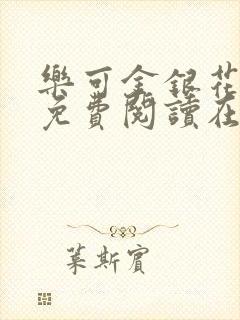 樂可金銀花
免費閱讀在
葉斯賓